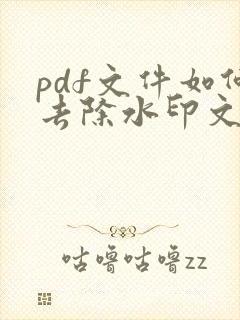 pdf文件如何
去除水印文
咕噜咕噜zz